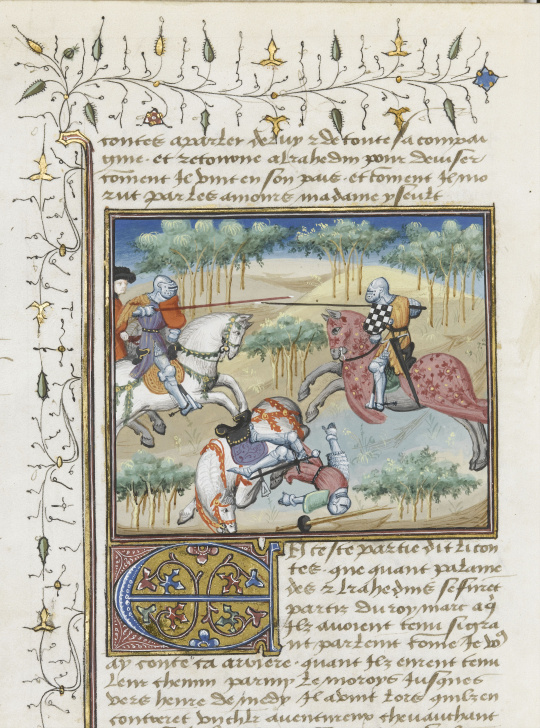 contes a parler de luy z de toute sa compai
gnie · et retourne a kahedin pour deviser
coment Il vint en son pais · et coment Il mo
rut par les amours madame yseult
En ceste partie dit li con
tes · que quant palame
des z kahedins se furet
partir du roy marc a q
Ilz avoient tenu si gra
nt parlemt come Je vo9
ay conte ca arriere · quant Ilz eurent tenu
leur chemin parmy le moroys Jusques
vers heure de midy Il avint lors quilz en
contreret vn chlr aventureux chevauchant